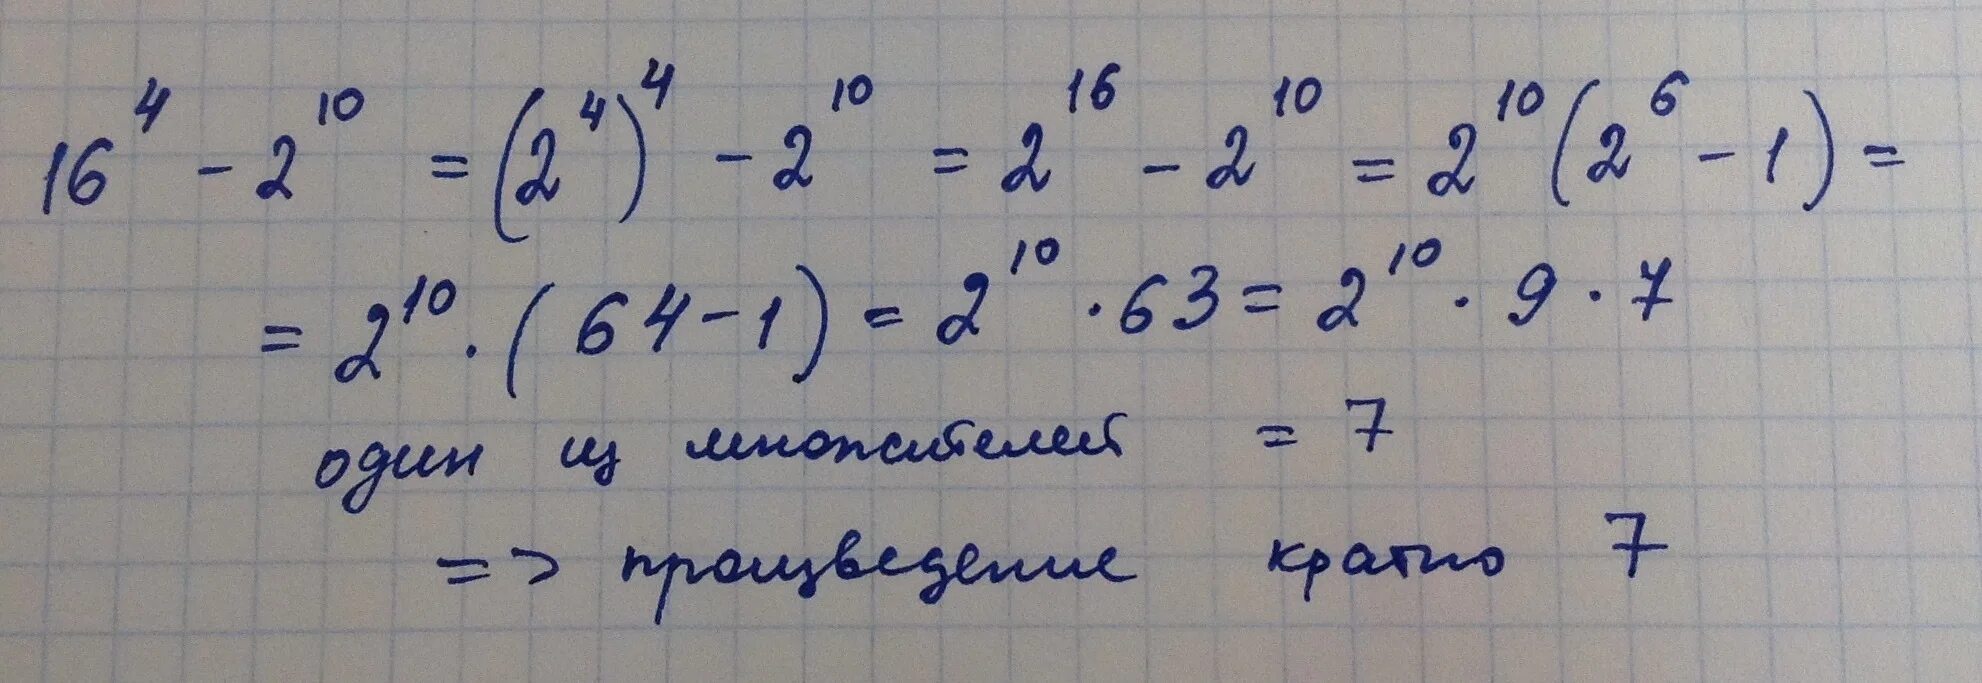 16⁴ - 2¹⁰ = (2⁴)⁴ - 2¹⁰ = 2¹⁶ - 2¹⁰ = 2¹⁰(2⁶ - 1) =
= 2¹⁰ · (64 - 1) = 2¹⁰ · 63 = 2¹⁰ · 9 · 7
один из множителей = 7
=> произведение кратно 7